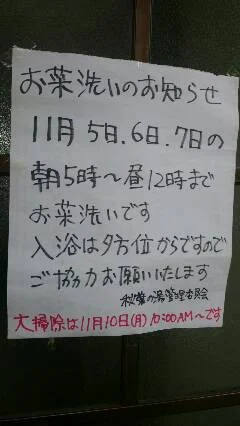 お菜洗いのお知らせ
11月5日.6日.7日の
朝5時〜昼12時まで
お菜洗いです
入浴は夕方位からですので
ご協力お願いいたします
秋葉の湯管理委員会
大掃除は11月10日(月)10:00AM〜です